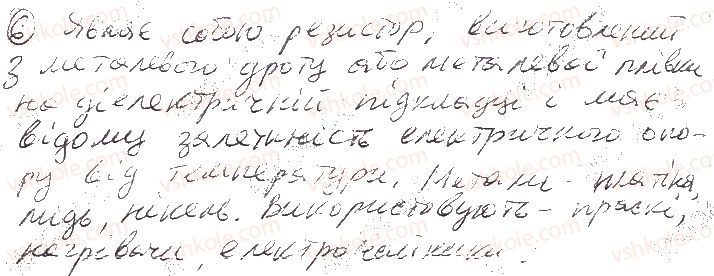 ⑥ Являє собою резистор, виготовлений
з металевого дроту або металевої плівки
на діелектричній підкладці і має
відому залежність електричного опо-
ру від температури. Метали - платіна,
мідь, нікель. Використовують - праски,
нагрівачи, електрочайники.